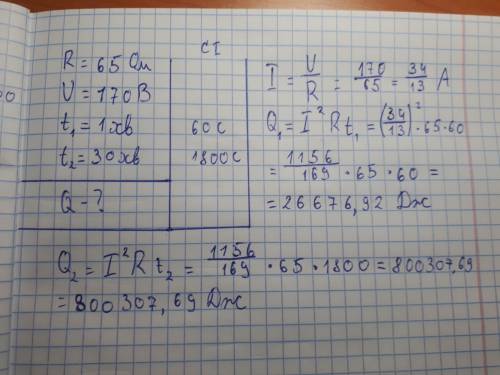 СІ
R = 65 Ом
U = 170 В
t₁ = 1 хв 60 с
t₂ = 30 хв 1800 с
Q - ?
I = U/R = 170/65 = 34/13 А
Q₁ = I² R t₁ = (34/13)² · 65 · 60
= 1156/169 · 65 · 60 =
= 26676,92 Дж
Q₂ = I² R t₂ = 1156/169 · 65 · 1800 = 800307,69
= 800307,69 Дж